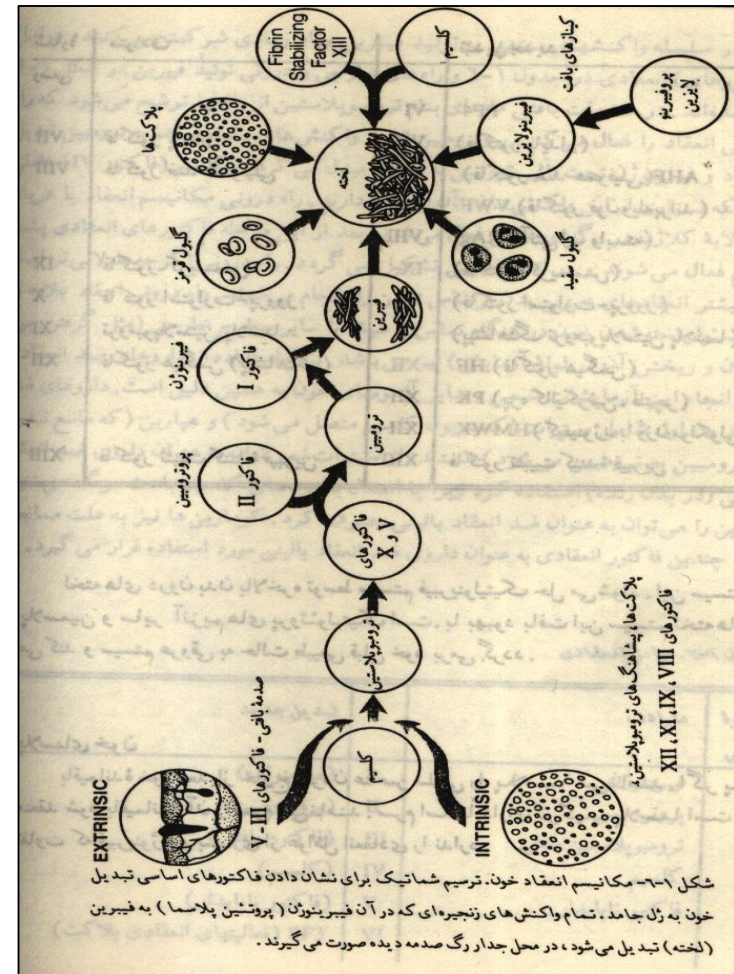 EXTRINSIC
صدمه بافتی - فاکتورهای V-III
INTRINSIC
پلاکت‌ها، پیشاهنگ‌های ترومبوپلاستین،
فاکتورهای XII ، XI ، IX ، VIII
کلسیم
ترومبوپلاستین
فاکتورهای
X و V
پروترومبین
فاکتور II
ترومبین
فیبرینوژن
فاکتور I
فیبرین
گلبول قرمز
گلبول سفید
پلاکت‌ها
لخته
Fibrin
Stabilizing
Factor
XIII
کلسیم
فیبرینولایزین
کینازهای بافت
پروفیبرینو
لایزین
شکل ۱-۶- مکانیسم انعقاد خون. ترسیم شماتیک برای نشان دادن فاکتورهای اساسی تبدیل
خون به ژل جامد. تمام واکنش‌های زنجیره‌ای که در آن فیبرینوژن (پروتئین پلاسما) به فیبرین
(لخته) تبدیل می‌شود، در محل جدار رگ صدمه دیده صورت می‌گیرند.